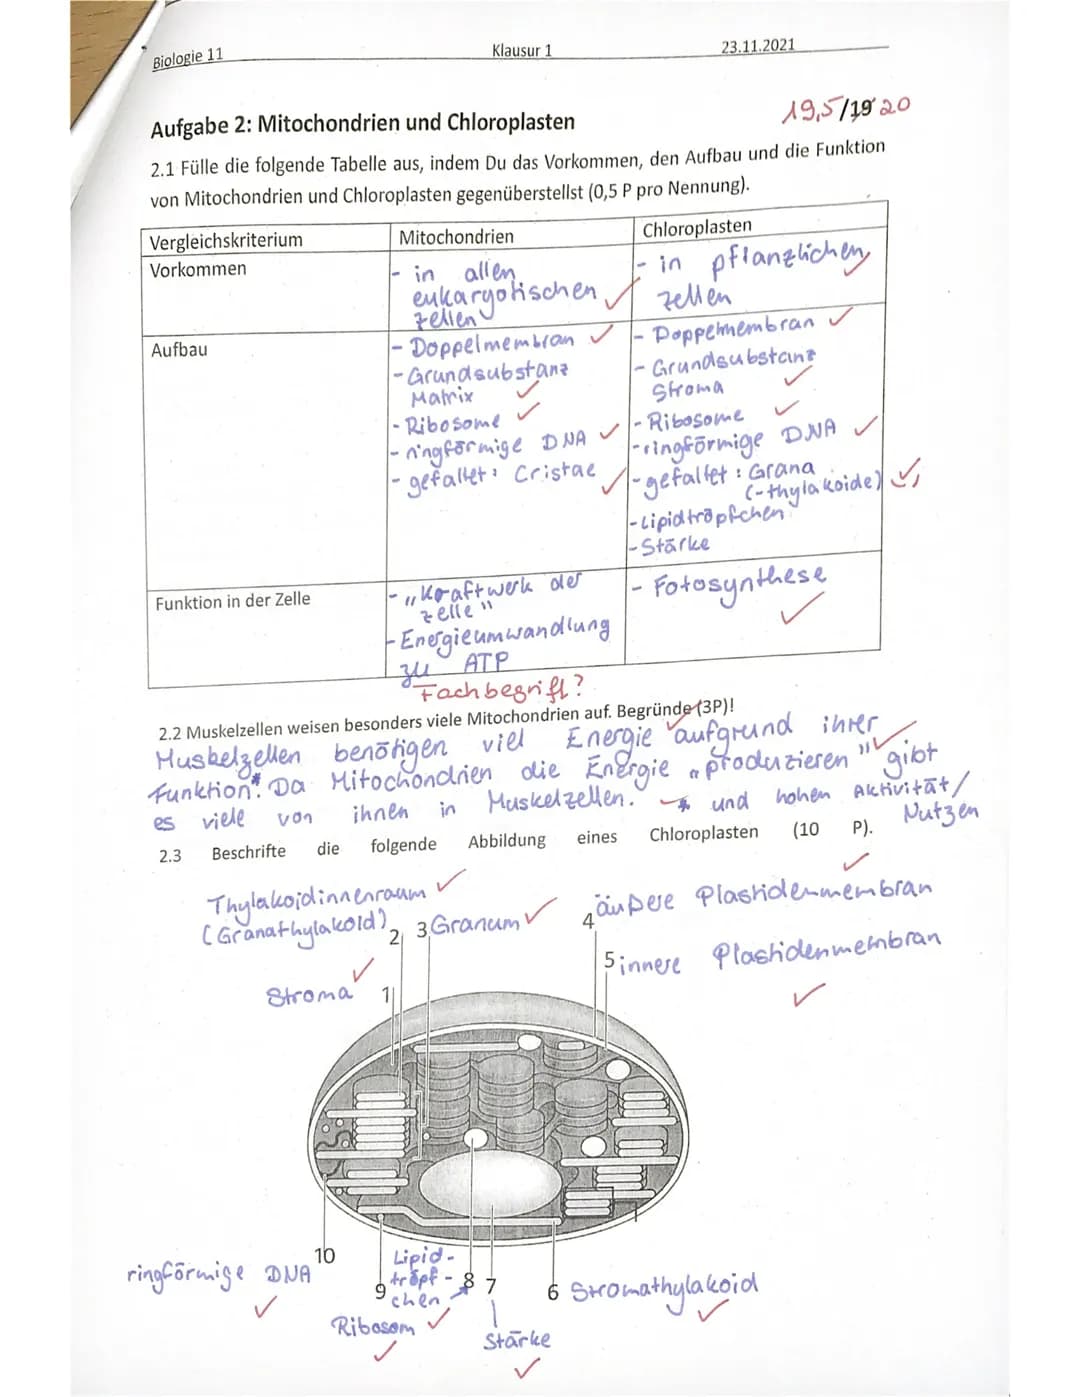 Biologie 11 Klausur 1 23.11.2021
19,5/19 20
Aufgabe 2: Mitochondrien und Chloroplasten
2.1 Fülle die folgende Tabelle aus, indem Du das Vorkommen, den Aufbau und die Funktion
von Mitochondrien und Chloroplasten gegenüberstellst (0,5 P pro Nennung).
Vergleichskriterium Mitochondrien Chloroplasten
Vorkommen
- in allen
eukaryotischen
Zellen
- in pflanzlichen
Zellen
Aufbau
- Doppelmembran
- Grundsubstanz
Matrix
- Ribosome
- ringförmige DNA
- gefaltet: Cristae
- Doppelmembran
- Grundsubstanz
Stroma
- Ribosome
- ringförmige DNA
- gefaltet: Grana
(-thylakoide)
- Lipidtröpfchen
- Stärke
Funktion in der Zelle
- "Kraftwerk der
Zelle"
- Energieumwandlung
zu ATP
Fachbegriff?
- Fotosynthese
2.2 Muskelzellen weisen besonders viele Mitochondrien auf. Begründe (3P)!
Muskelzellen benötigen viel Energie aufgrund ihrer
Funktion.* Da Mitochondrien die Energie "produzieren" gibt
es viele von ihnen in Muskelzellen. * und hohen Aktivität/
Nutzen
2.3 Beschrifte die folgende Abbildung eines Chloroplasten (10 P).
Thylakoidinnenraum
(Granathylakoid) 2
3 Granum
4 äußere Plastidenmembran
5 innere Plastidenmembran
Stroma 1
10
ringförmige DNA
9
Ribosom
Lipid-
tröpf-
chen
8 7
Stärke
6 Stromathylakoid